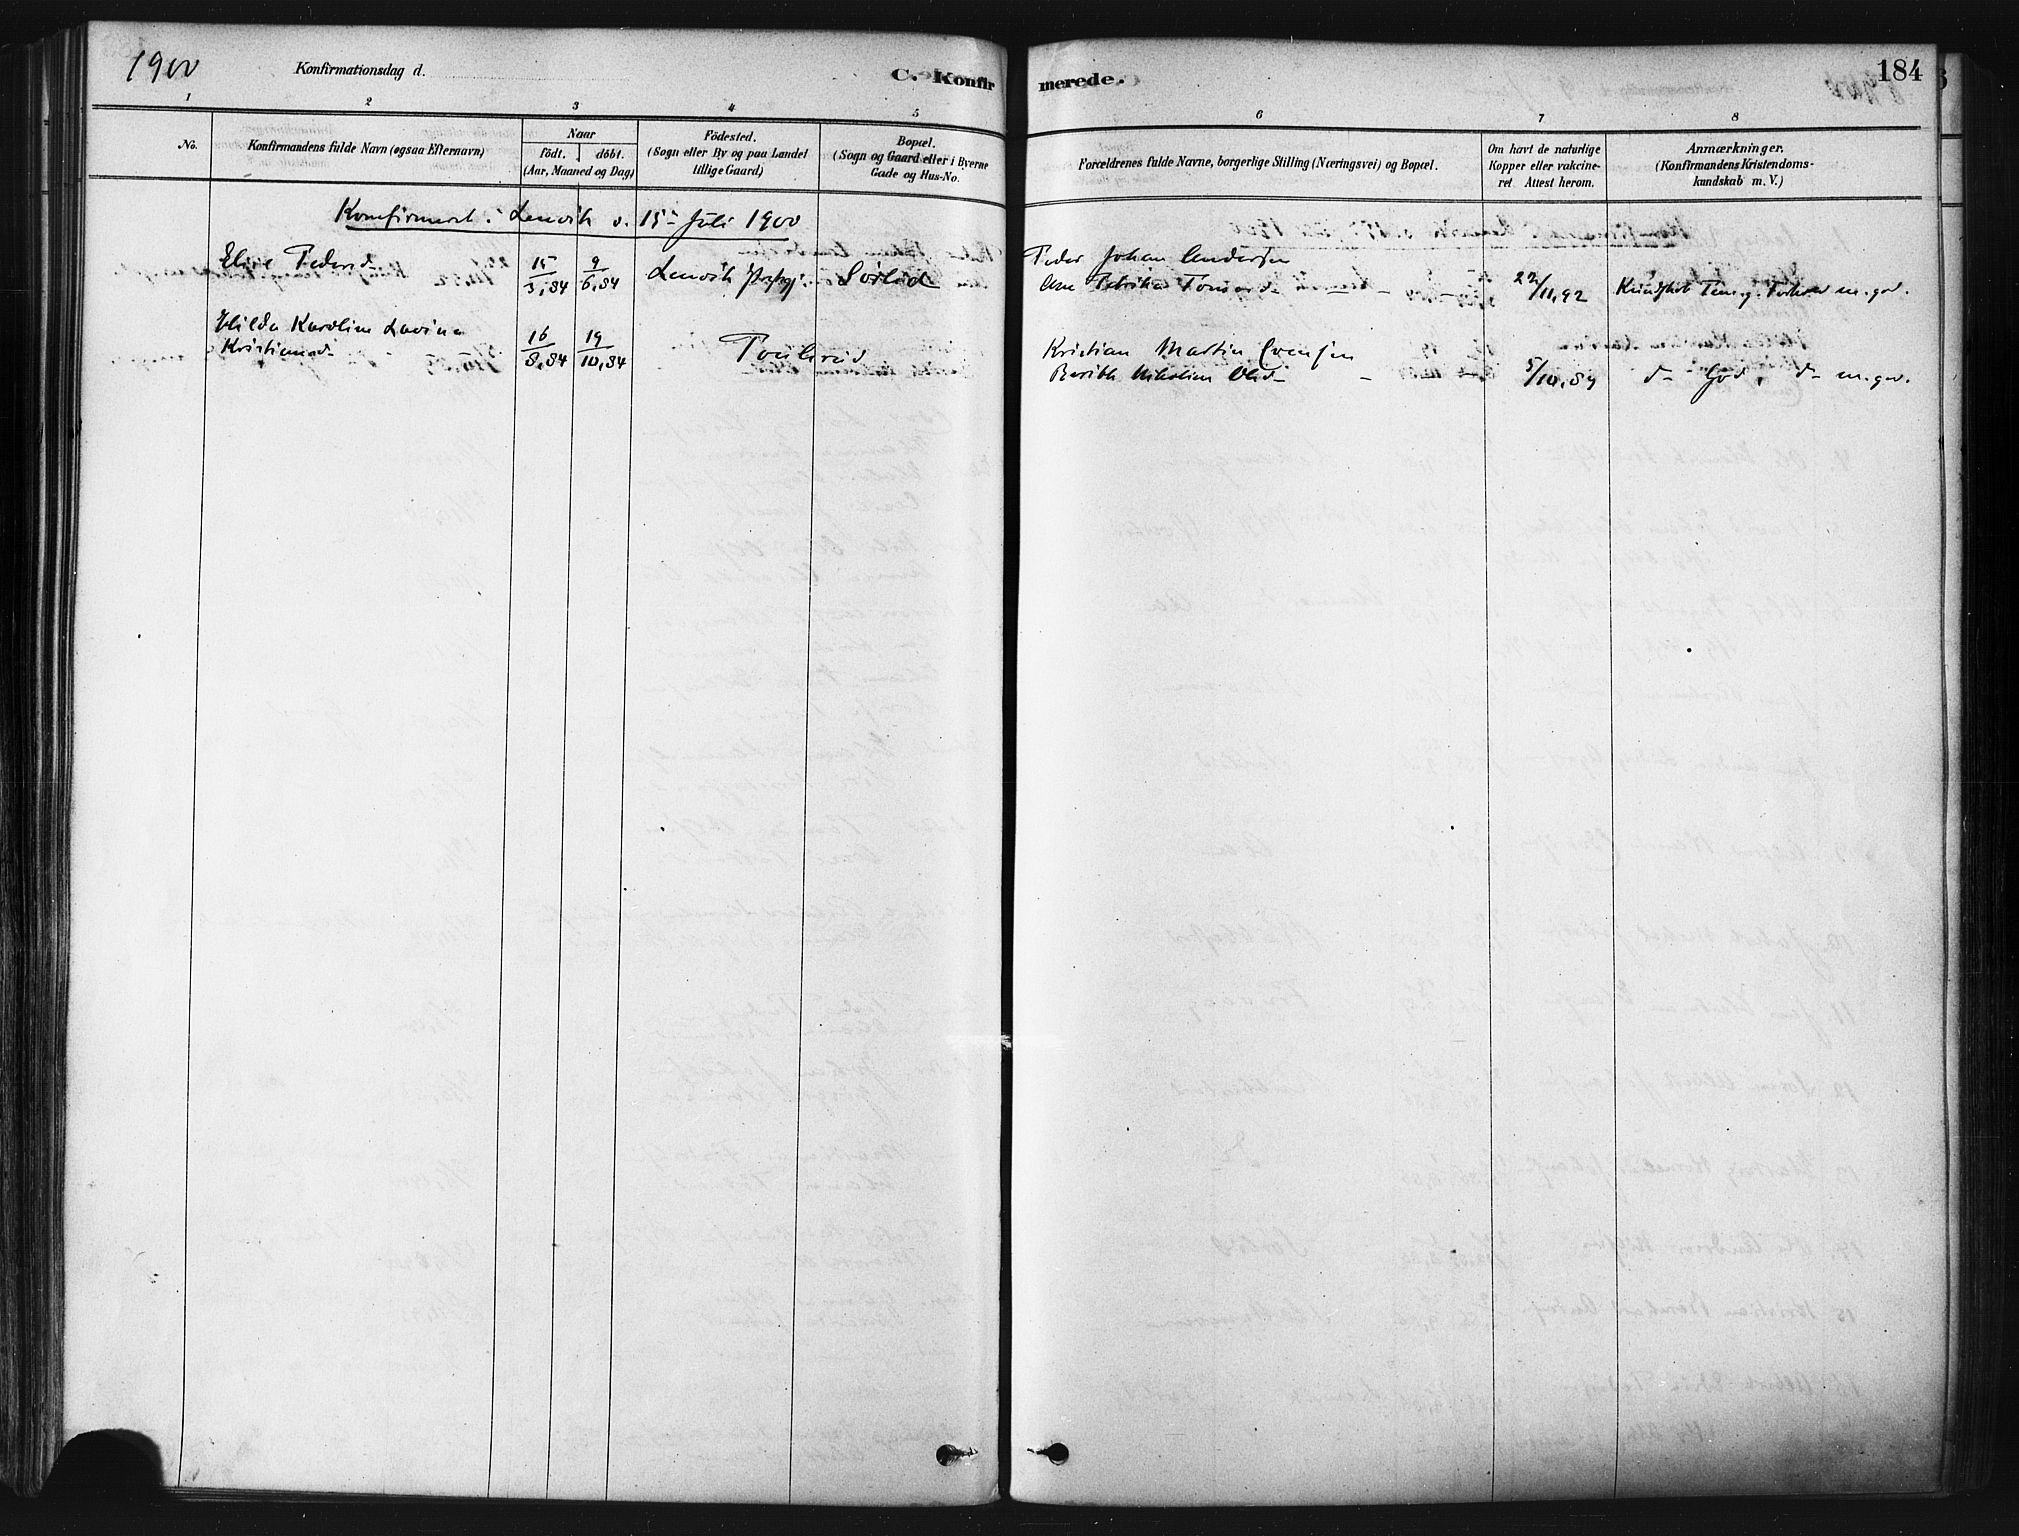 1900
Konfirmationsdag d.
C. Konfirmerede.
184
1 2 3 4 5 6 7 8
No.
Konfirmandens fulde Navn (ogsaa Efternavn)
Naar
födt. döbt.
(Aar, Maaned og Dag)
Födested.
(Sogn eller By og paa Landet
tillige Gaard)
Bopæl.
(Sogn og Gaard eller i Byerne
Gade og Hus-No.
Forældrenes fulde Navne, borgerlige Stilling (Næringsvei) og Bopæl.
Om havt de naturlige
Kopper eller vakcine-
ret Attest herom.
Anmærkninger.
(Konfirmandens Kristendoms-
kundskab m. V.)
Konfirmeret i Lenvik d. 15de Juli 1900
Elise Pedersd. 15/3,84 9/6,84 Lenvik Sörlid Peder Johan Andersen
22/11,92 Kundskab m.god.
Hilda Karoline Lavina Kristian Martin Evensen
Kristiansd. 16/8,84 19/10,84 Berith Nikoline Olsd. 5/10,89 do God, do m.god.